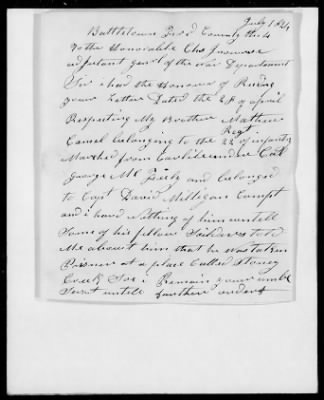 July 1814
Battletown Fred County the 4
To the Honorable Chs
adjutant genrl of the war Department
Sir i had the Honour of
your Letter Dated the 28 of april
Respecting My Brother Mathew
Camel belonging to the 22 Regt of infantry
Marched from Carlisle under Col
George Mc Feely and belonged
to Capt David Milligan Compt
and i have Nothing of him untell
Some of his fellow told
Me about him that he was taken
Prisoner at a place Called Stoney
Creek Sor i Remain your umble
Servt untell farther orders